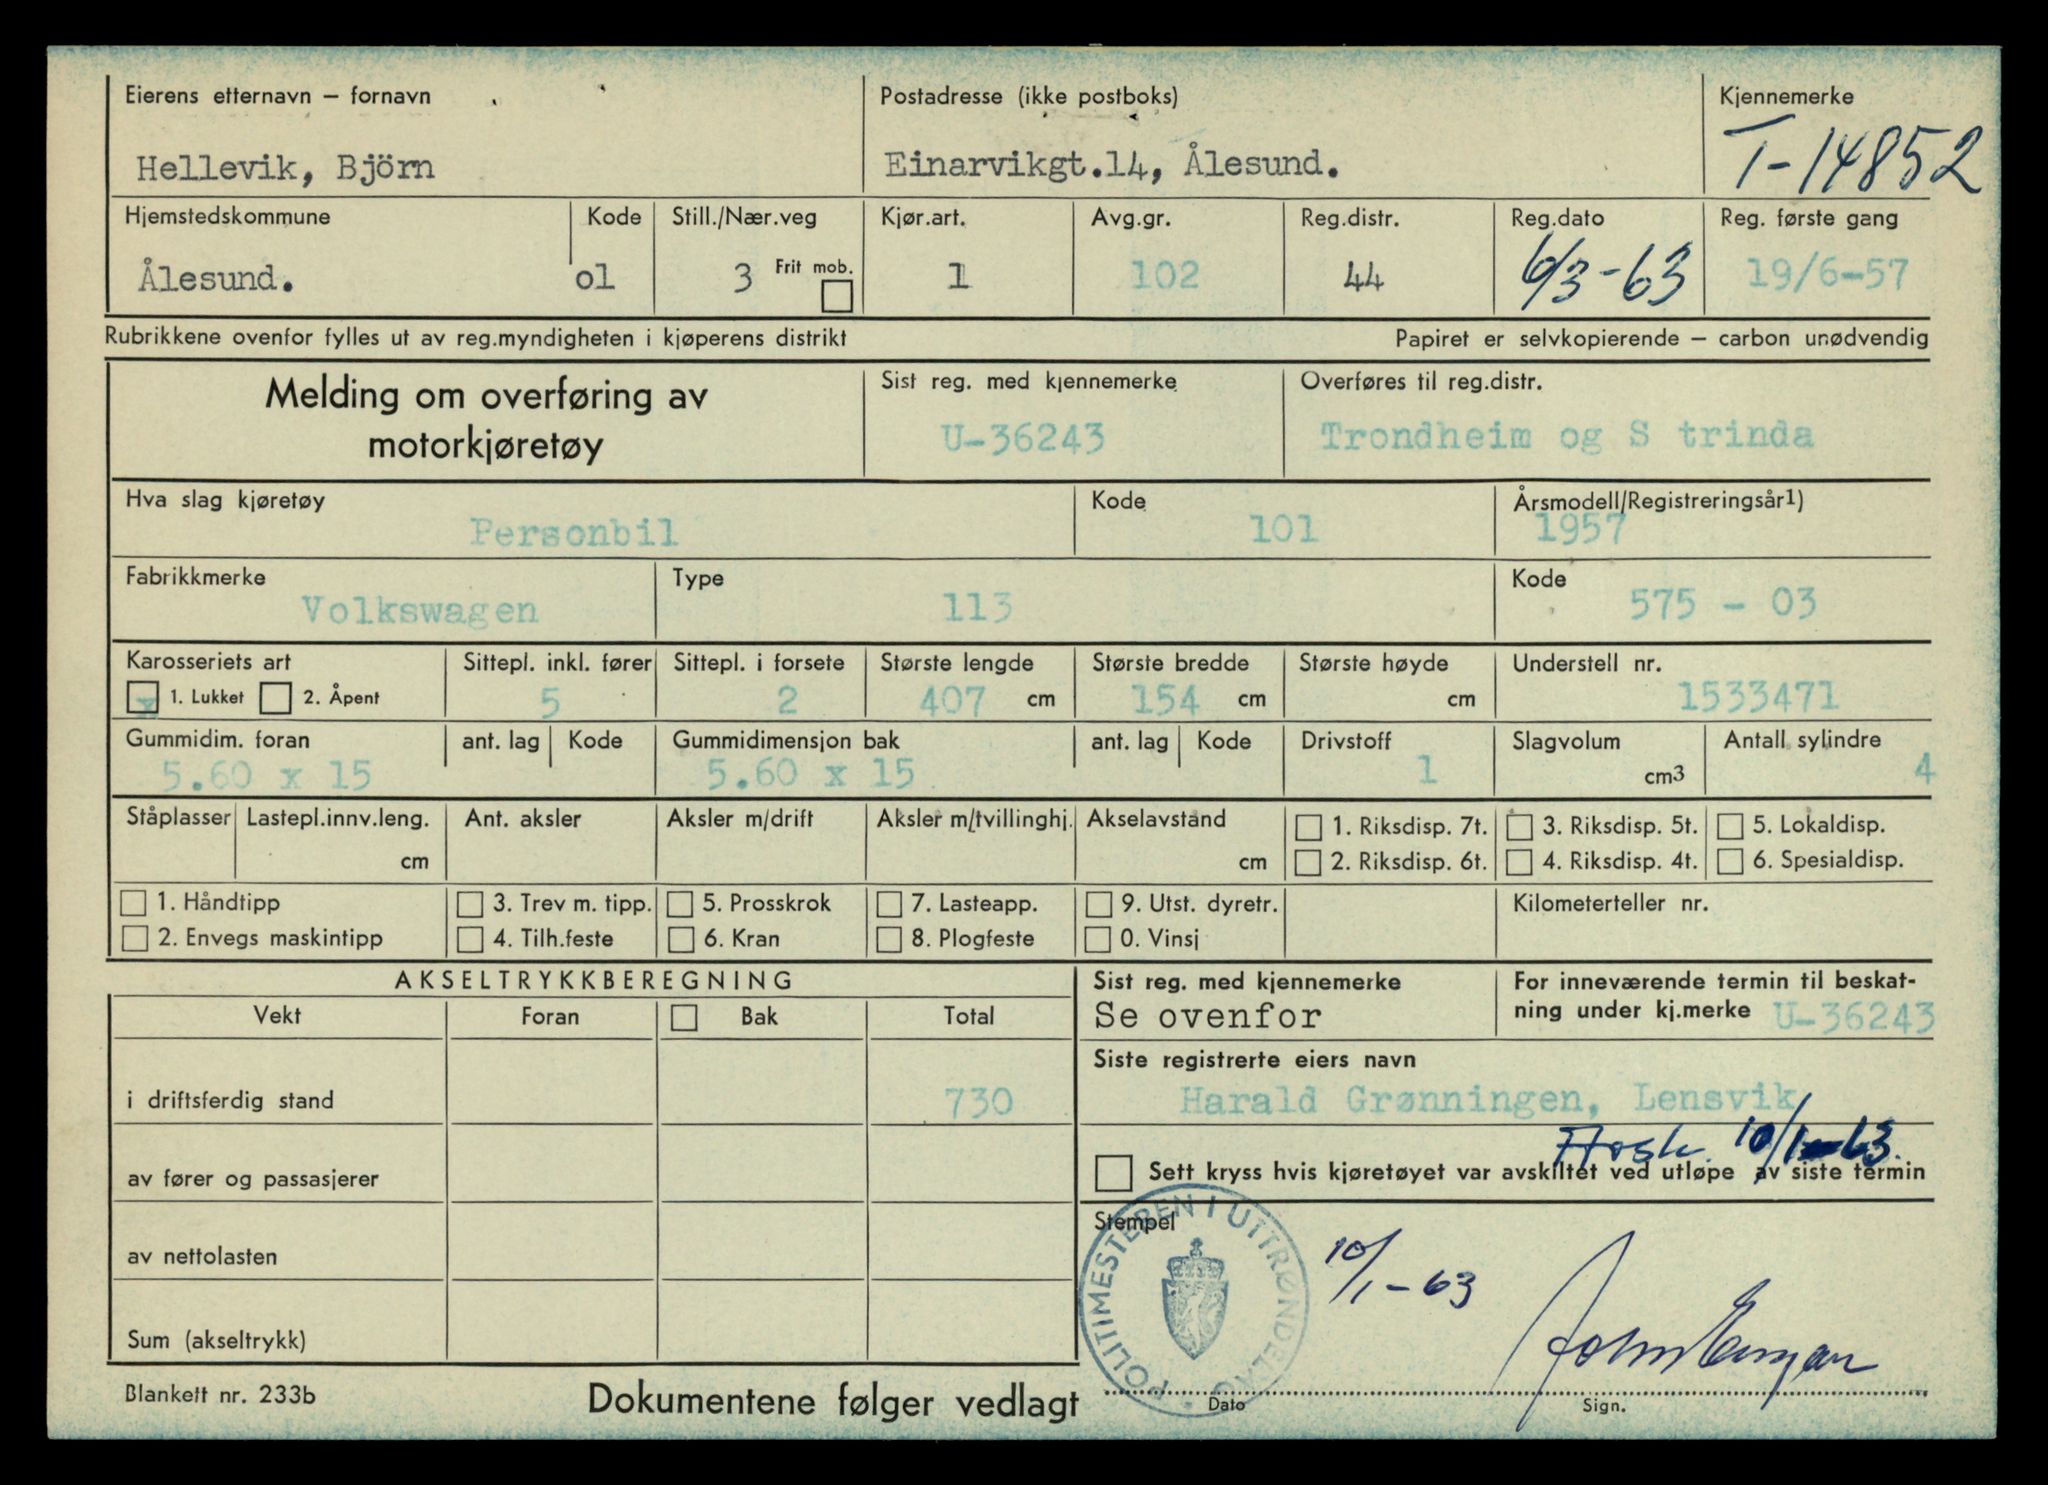 Eierens etternavn – fornavn
Hellevik, Björn
Postadresse (ikke postboks)
Einarvikgt.14, Ålesund.
Kjennemerke
T-14852
Hjemstedskommune
Ålesund.
Kode
o1
Still./Nær.veg
3 Frit mob.
Kjør.art.
1
Avg.gr.
102
Reg.distr.
44
Reg.dato
6/3-63
Reg. første gang
19/6-57
Rubrikkene ovenfor fylles ut av reg.myndigheten i kjøperens distrikt
Papiret er selvkopierende – carbon unødvendig
Melding om overføring av
motorkjøretøy
Sist reg. med kjennemerke
U-36243
Overføres til reg.distr.
Trondheim og S trinda
Hva slag kjøretøy
Personbil
Kode
101
Årsmodell/Registreringsår1)
1957
Fabrikkmerke
Volkswagen
Type
113
Kode
575 - 03
Karosseriets art
x 1. Lukket 2. Åpent
Sittepl. inkl. fører
5
Sittepl. i forsete
2
Største lengde
407 cm
Største bredde
154 cm
Største høyde
cm
Understell nr.
1533471
Gummidim. foran
5.60 x 15
ant. lag Kode
Gummidimensjon bak
5.60 x 15
ant. lag Kode
Drivstoff
1
Slagvolum
cm3
Antall sylindre
4
Ståplasser
Lastepl.innv.leng.
cm
Ant. aksler
Aksler m/drift
Aksler m/tvillinghj.
Akselavstand
cm
1. Riksdisp. 7t.
2. Riksdisp. 6t.
3. Riksdisp. 5t.
4. Riksdisp. 4t.
5. Lokaldisp.
6. Spesialdisp.
1. Håndtipp
2. Envegs maskintipp
3. Trev m. tipp.
4. Tilh.feste
5. Prosskrok
6. Kran
7. Lasteapp.
8. Plogfeste
9. Utst. dyretr.
0. Vinsj
Kilometerteller nr.
AKSELTRYKKBEREGNING
Vekt Foran Bak Total
i driftsferdig stand 730
av fører og passasjerer
av nettolasten
Sum (akseltrykk)
Sist reg. med kjennemerke
Se ovenfor
For inneværende termin til beskat-
ning under kj.merke U-36243
Siste registrerte eiers navn
Harald Grønningen, Lensvik
10/1-63.
Sett kryss hvis kjøretøyet var avskiltet ved utløpe av siste termin
Stempel
POLITIMESTEREN I UTTRØNDELAG
10/1-63
Dato
Sign.
Blankett nr. 233b
Dokumentene følger vedlagt